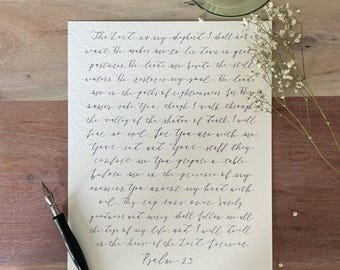 The Lord is my shepherd I shall not
want He makes me to lie down in green
pastures. He leads me beside the still
waters He restores my soul. He leads
me in the paths of righteousness For His
names sake Yea, though I walk through
the valley of the shadow of death, I will
fear no evil. For You are with me
Your rod and Your staff they
comfort me You prepare a table
before me in the presence of my
enemies You anoint my head with
oil. My cup runs over. Surely
goodness and mercy shall follow me all
the days of my life and I will dwell
in the house of the Lord Forever
Psalm 23